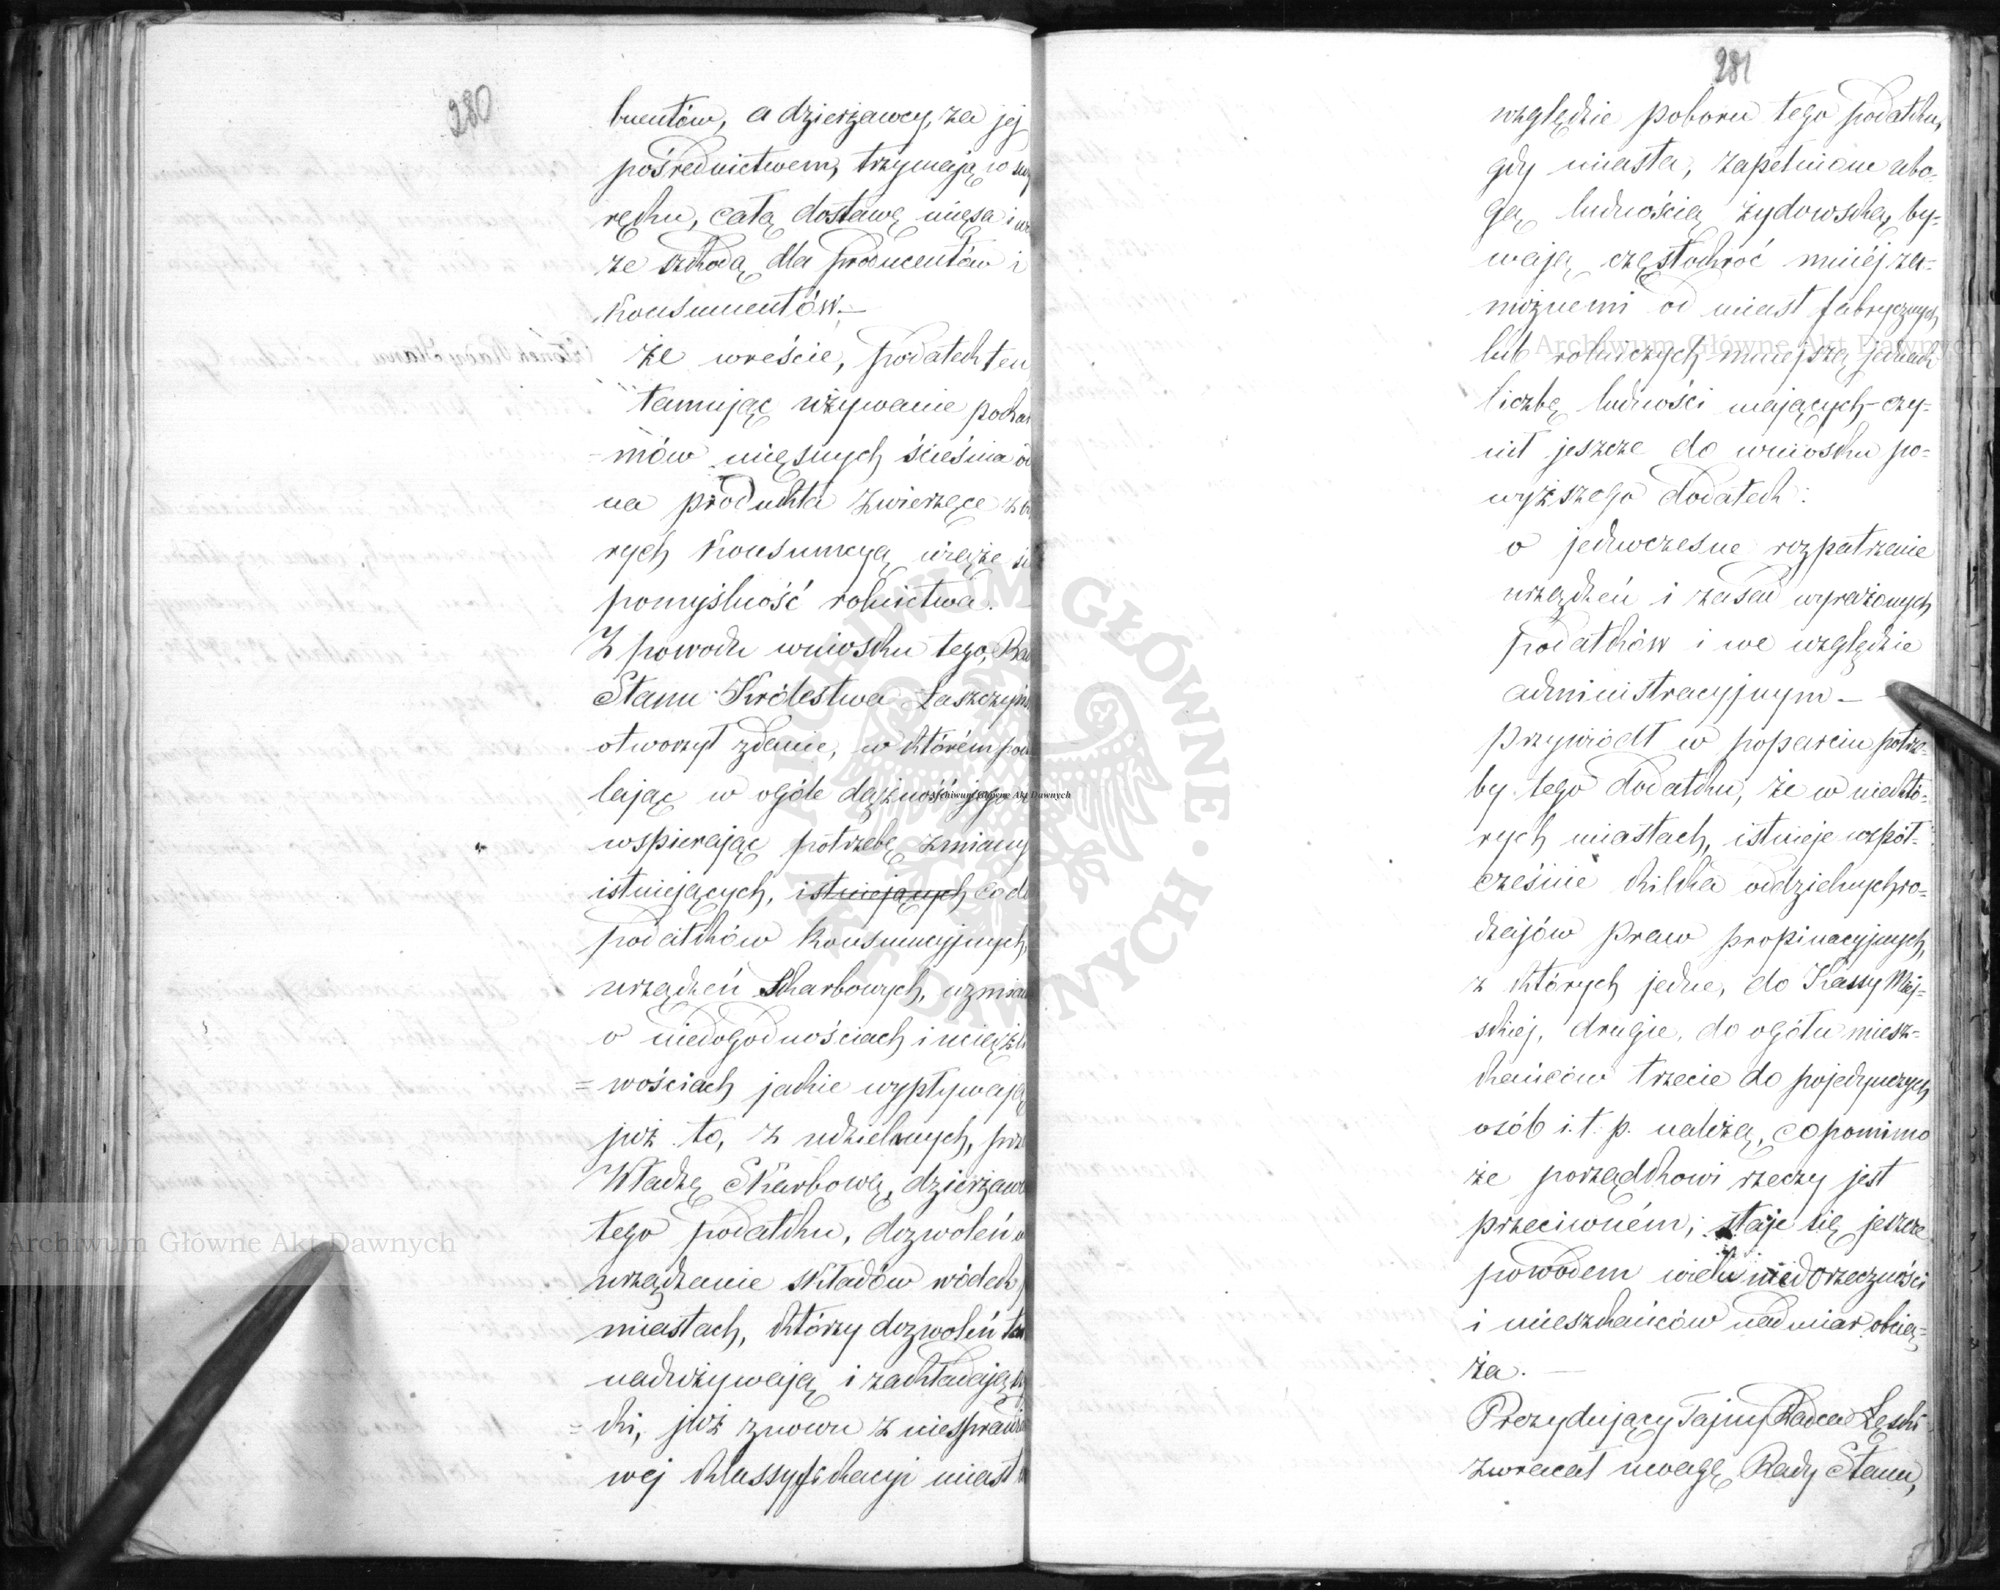 280
buentów, a dzierżawcy, za jej
pośrednictwem, trzymają w swym
ręku, całą dostawę mięsa i
ze szkodą dla producentów i
konsumentów.—
że wreście, podatek ten
tamując używanie pokar
mów mięsnych ścieśnia
na produkta zwierzęce z
rych konsumcyą wiąże si
pomyślność rolnictwa.
Z powodu wniosku tego, Rad
Stanu Królestwa Łaszczyńs
otworzył zdanie, w którém podz
lając w ogóle dążność jego
wspierając potrzebę zmiany
istniejących, istniejących co do
podatków konsumcyjnych,
urządzeń Skarbowych, wzmian
o niedogodnościach i uciążli
=wościach jakie wypływają
już to, z udzielonych, prze
Władzę Skarbową, dzierżawc
tego podatku, dozwoleń
urządzanie składów wódek
miastach, którzy dozwoleń
nadużywają i zakładają
=ki, już znowu z niesprawie
wéj klassyfikacyi miast
281
względzie poboru tego podatku,
gdy miasta, zapełnione ubo-
gą ludnością żydowską by-
wają częstokroć mniéj za-
możnemi od miast fabrycznych
lub rolniczych mniejszą jednak
liczbę ludności mających – czy-
nił jeszcze do wniosku po-
wyższego dodatek:
o jednoczesne rozpatrzenie
urządzeń i zasad wyrażonych
podatków i we względzie
administracyjnym —
Przywiódł w poparciu potrze-
by tego dodatku, że w niektó-
rych miastach, istnieje współ-
cześnie kilka oddzielnych ro-
dzajów praw propinacyjnych,
z których jedne, do Kassy Miej-
skiej, drugie, do ogółu miesz-
kańców trzecie do pojedynczych
osób i. t. p. należą, co pomimo
że porządkowi rzeczy jest
przeciwném, staje się jeszcze
powodem wielu niedorzeczności
i mieszkańców nadmiar obcią-
ża.—
Prezydujący Tajny Radca Łęski
zwracał uwagę Rady Stanu,
Archiwum Główne Akt Dawnych
Archiwum Główne Akt Dawnych
Archiwum Główne Akt Dawnych
ARCHIWUM GŁÓWNE AKT DAWNYCH